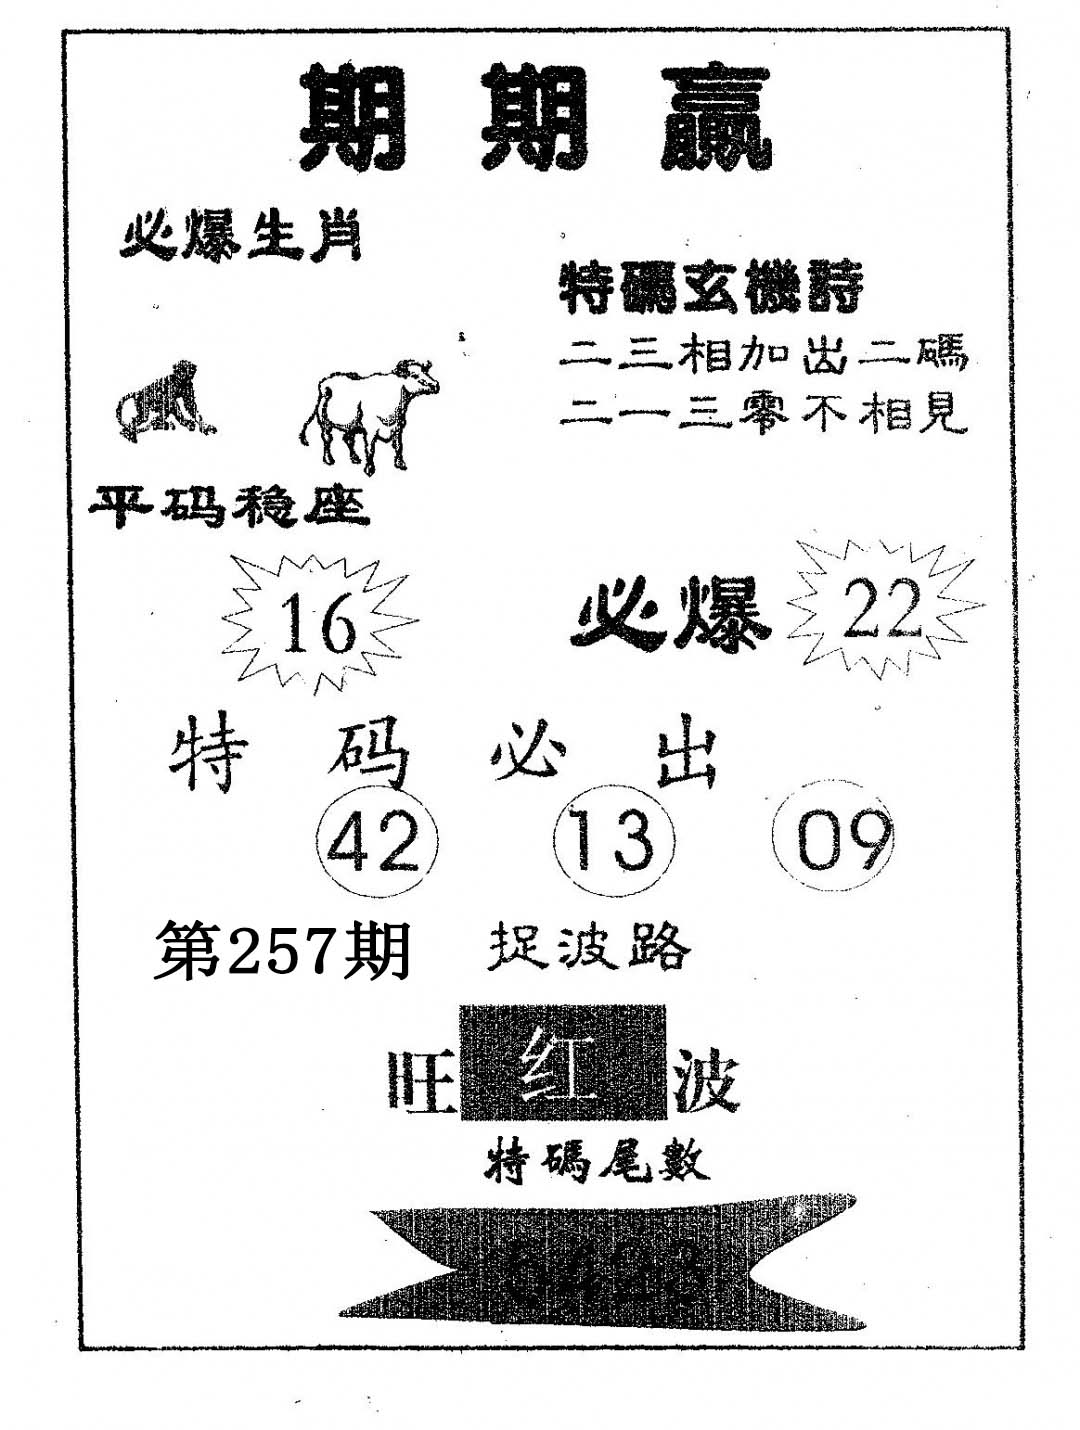 期期赢
必爆生肖
特碼玄機詩
二三相加出二碼
二一三零不相見
平码稳座
16
必爆 22
特码必出
42 13 09
第257期 捉波路
旺红波
特碼尾數